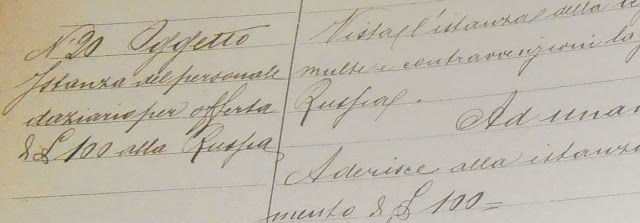 N. 20 Oggetto
Istanza del personale
daziario per offerta
di £ 100 alla Russia
Vista l'istanza della
multe e contravvenzioni
Russia.
Ad unan
Aderisce alla istanza
mento di £ 100 =